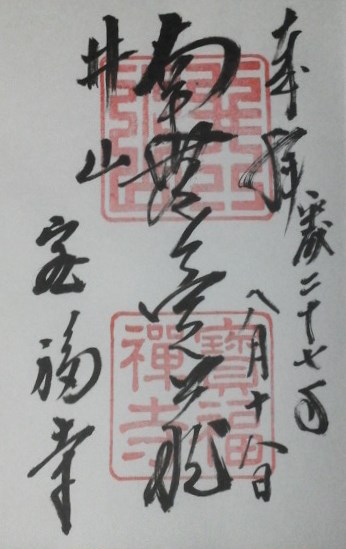 奉拝
平成二十七年
八月十八日
南無虚空蔵
寶福
禪寺
井山
宝福寺